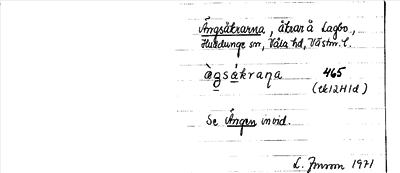 Ängsåkrarna, åkrar å Lagbo,
Huddunge sn, Våla hd, Västm. l.
ä̀gsåkraɳa 465
(ek12H1d)
Se Ängen invid.
L. Jonson 1971